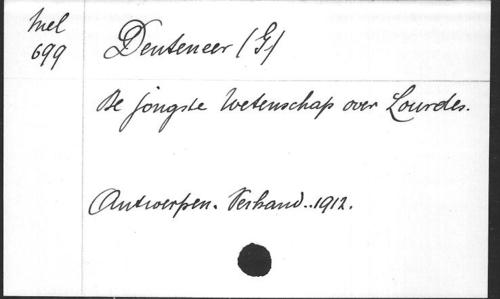 Mel
699
Denteneer (G)
De jongste Wetenschap over Lourdes.
Antwerpen. Verhand..1912.